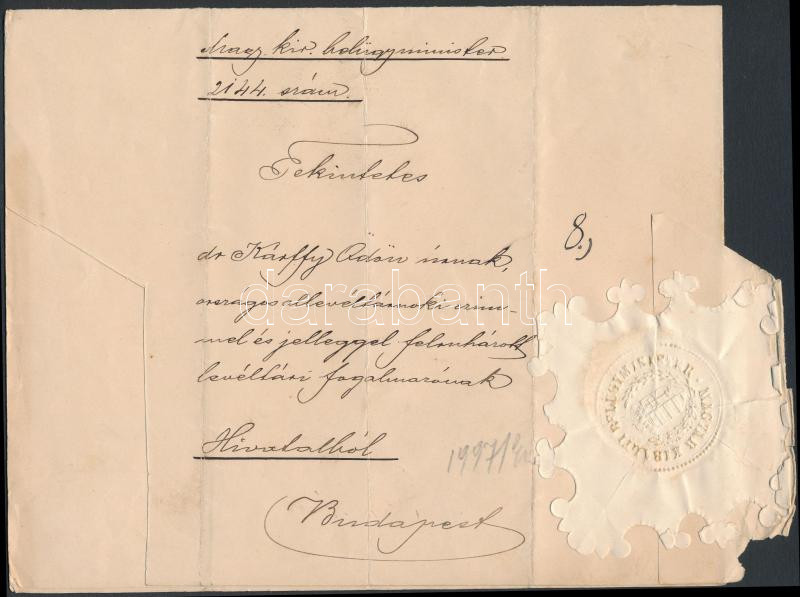 Magy. kir. belügyminister.
2144. szám.
Tekintetes
8.,
dr Kárffy Ödön úrnak,
országos allevéltárnoki czim-
mel és jelleggel felruházott
levéltári fogalmazónak
darabanth
Hivatalból
Budapest
MAGYAR KIRÁLYI BELÜGYMINISTER